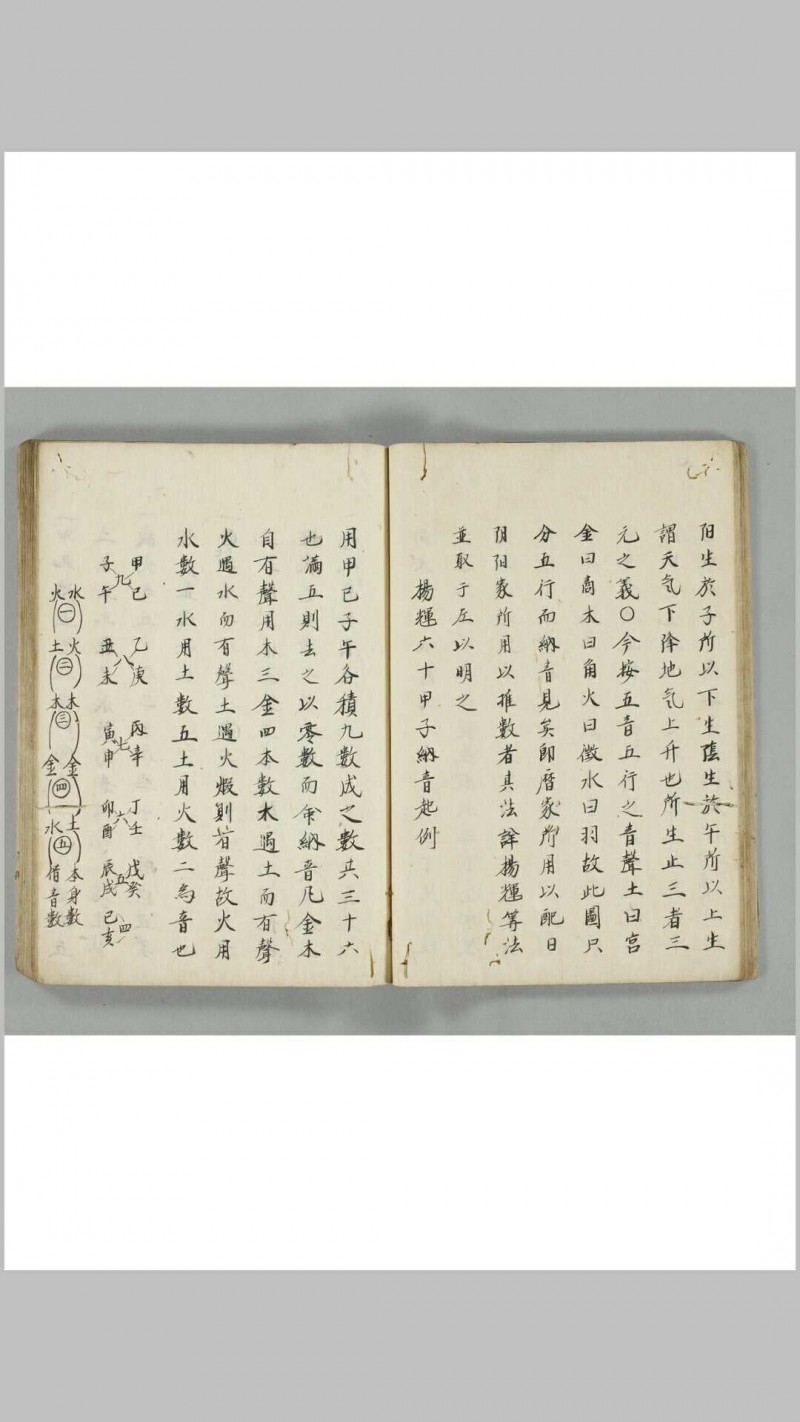 阳生於子所以下生䕃生於午所以上生
謂天气下降地气上升也所生止三者三
元之義〇今按五音五行之音聲土曰宮
金曰商木曰角火曰徵水曰羽故此圖只
分五行而納音見矣即曆家所用以配日
阴阳家所用以推数者其法詳楊輝筭法
並取于左以明之
楊輝六十甲子納音起例
用甲己子午各積九数成之数共三十六
也滿五則去之以零数而命納音凡金木
自有聲用木三金四本数水遇土而有聲
火遇水而有聲土遇火煅則有聲故火用
水数一水用土数五土用火数二為音也
甲己 乙庚 丙辛 丁壬 戊癸
九 八 七 六 五 四
子午 丑未 寅申 卯酉 辰戌 己亥
水 火 木 金 土 本身数
一 二 三 四 五
火 土 木 金 水 借音数